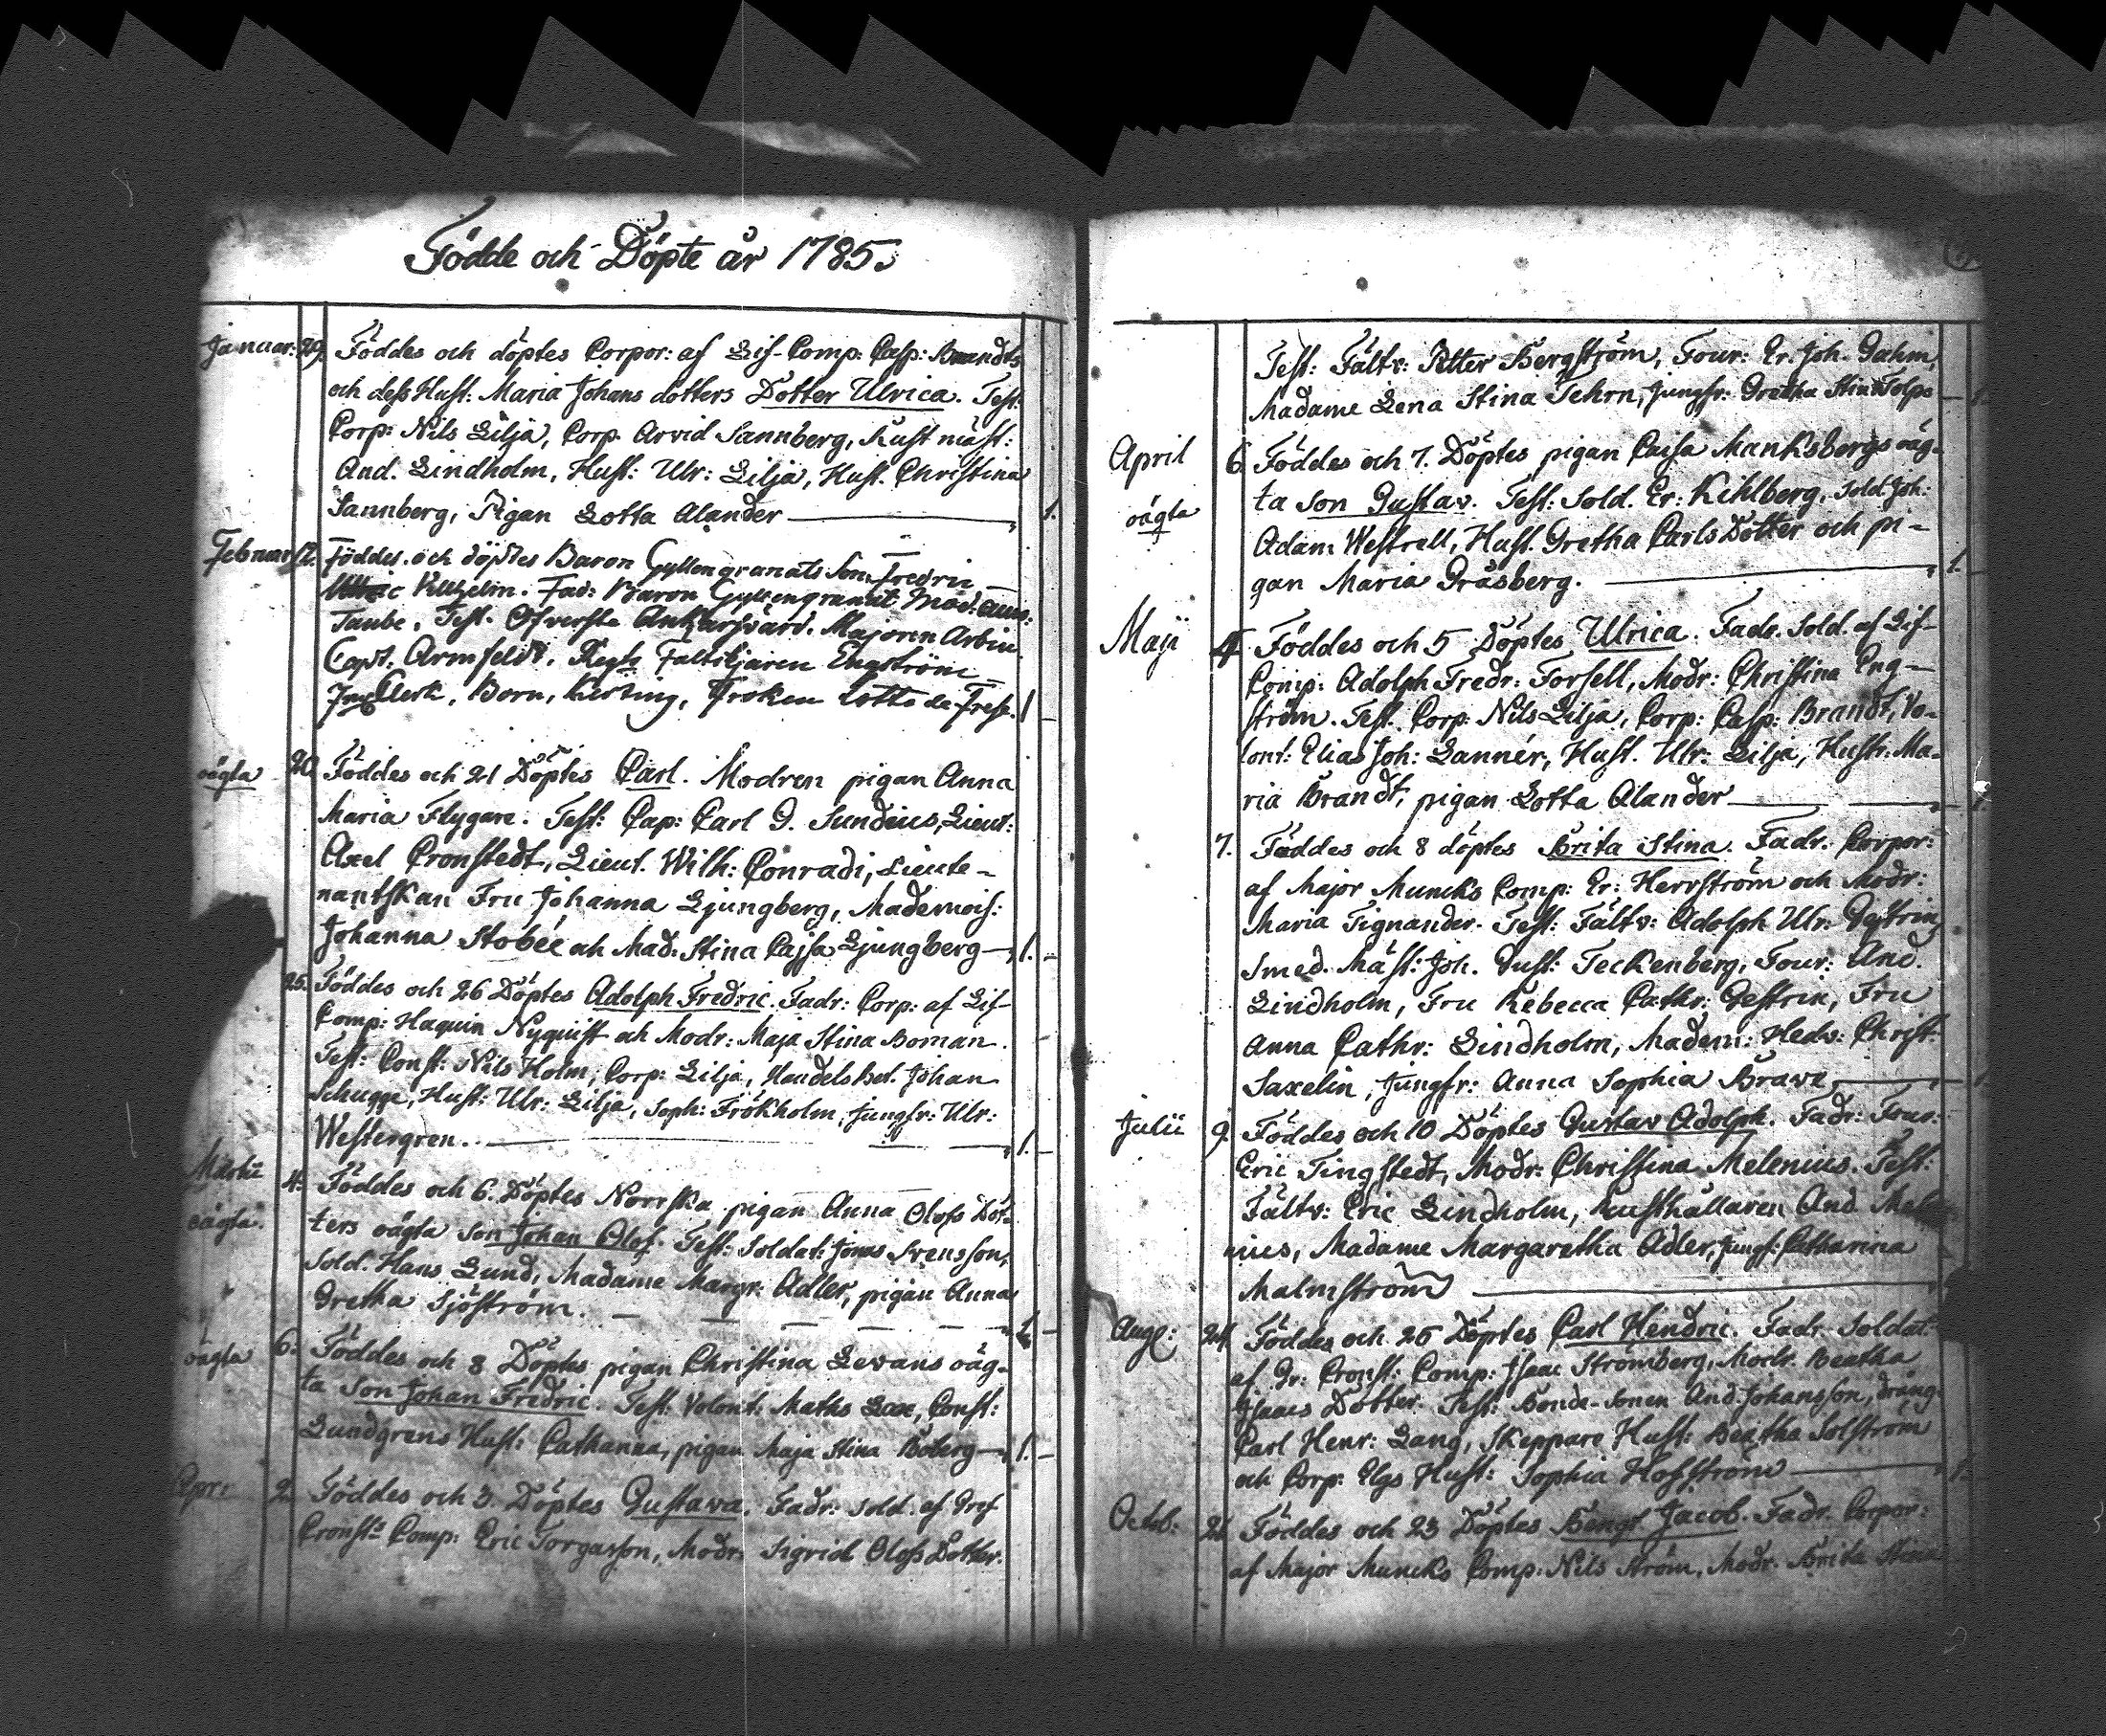 Födde och Döpte år 1785.
Januar: 29. Föddes och döptes Corpor: af Lif-Comp: Casp: Brandts
och dess Hust: Maria Johans dotters Dotter Ulrica. Test:
Corp: Nils Lilja, Corp. Arvid Sannberg, Rust mäst:
And. Lindholm, Hust: Ulr: Lilja, Hust. Christina
Sannberg, Pigan Lotta Alander 1.
Februar 12. Föddes och döptes Baron Gyllengranats Son Fredric
Wilhelm. Fad: Baron Gyllengranat Mod:
Taube, Test. Öfverste Ankarsvärd. Majoren Arbin
Capt. Armfeldt, Regts Fältskjären Engström
Clerk, Born, Kersting, Fröken Lotta de Frese. 1
oägta 20. Föddes och 21 Döptes Carl. Modren pigan Anna
Maria Flygare. Test: Cap: Carl G. Sundius, Lieut:
Axel Cronstedt, Lieut. Wilh: Conradi, Lieute-
nantskan Fru Johanna Ljungberg, Mademois:
Johanna Stobée och Mad: Stina Cajsa Ljungberg 1.
25. Föddes och 26 Döptes Adolph Fredric. Fadr: Corp: af Lif-
Comp: Haquin Nyquist och Modr: Maja Stina Boman.
Test: Const: Nils Holm, Corp: Lilja, Handels Bet. Johan
Schugge, Hust: Ulr: Lilja, Soph: Frökholm, Jungfr: Ulr:
Westergren. 1.
Martii 4. Föddes och 6. Döptes Norrska pigan Anna Olofs Dot-
oägta. ters oägta son Johan Olof. Test: Soldat: Jonas Svensson,
Sold. Hans Lund, Madame Margr: Adler, pigan Anna
Gretha Sjöström. 1.
oägta 6. Föddes och 8 Döptes pigan Christina Levans oäg-
ta son Johan Fredric. Test: Volont: Maths Lax, Const:
Lundgrens Hust: Catharina, pigan Maja Stina Boberg 1.
April 2. Föddes och 3. Döptes Gustava. Fadr: Sold. af Gref
Cronsts Comp: Eric Torgarsson, Modr: Sigrid Olofs Dotter.
Test: Fältv: Petter Bergström, Four: Er. Joh. Dahm,
Madame Lena Stina Tehrn, Jungfr: Gretha Stina Tolpo 1.
April 6 Föddes och 7. Döptes pigan Caisa Manksbergs oäg-
oägta ta son Gustav. Test: Sold. Er: Kihlberg, Sold. Joh:
Adam Westrell, Hust. Gretha Carls Dotter och pi-
gan Maria Gräsberg. 1.
Maji 4 Föddes och 5 Döptes Ulrica. Fadr. Sold. af Lif-
Comp: Adolph Fredr: Forsell, Modr: Christina Eng-
ström. Test. Corp: Nils Lilja, Corp: Casp: Brandt, Vo-
lont: Elias Joh: Lannér, Hust. Ulr: Lilja, Hustr: Ma-
ria Brandt, pigan Lotta Alander 1.
7. Föddes och 8 döptes Brita Stina. Fadr. Corpor:
af Major Muncks Comp: Er: Herrström och Modr:
Maria Tignander. Test: Fältv: Adolph Ulr: Gestrin,
Smed. Mäst: Joh. Gust: Teckenberg, Four: And.
Lindholm, Fru Rebecca Cathr: Gestrin, Fru
Anna Cathr: Lindholm, Madem: Hedv: Christ:
Saxelin, Jungfr: Anna Sophia Brave,
Julii 9. Föddes och 10 Döptes Gustav Adolph. Fadr: Four:
Eric Tingstedt, Modr: Christina Melenius. Test:
Fältv: Eric Lindholm, Rusthållaren And. Mele
nius, Madame Margaretha Adler, Jungf: Catharina
Malmström
Aug: 24. Föddes och 25 Döptes Carl Hendric. Fadr. Soldat.
af Gr: Cronst: Comp: Isaac Stromberg, Modr. Beatha
Isaacs Dotter. Test: Bonde-Sonen And. Johansson, dräng.
Carl Henr: Lang, Skeppare Hust: Beatha Solström
och Corp: Elgs Hust: Sophia Hofström 1.
Octob: 21 Föddes och 23 Döptes Bengt Jacob. Fadr. Corpor:
af Major Muncks Comp: Nils Ström, Modr. Brita Stina